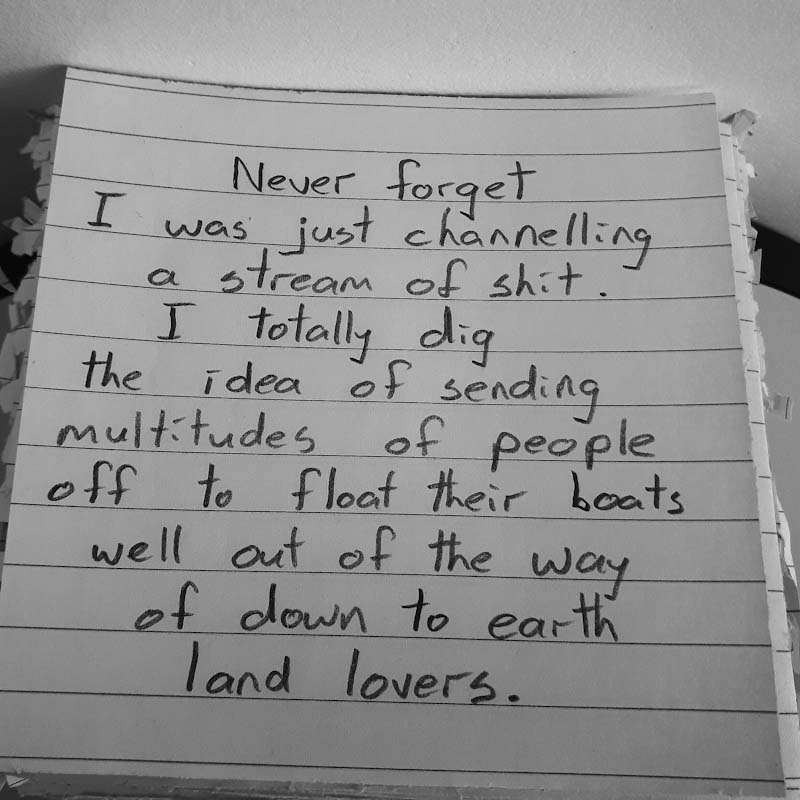 Never forget
I was just channelling
a stream of shit.
I totally dig
the idea of sending
multitudes of people
off to float their boats
well out of the way
of down to earth
land lovers.